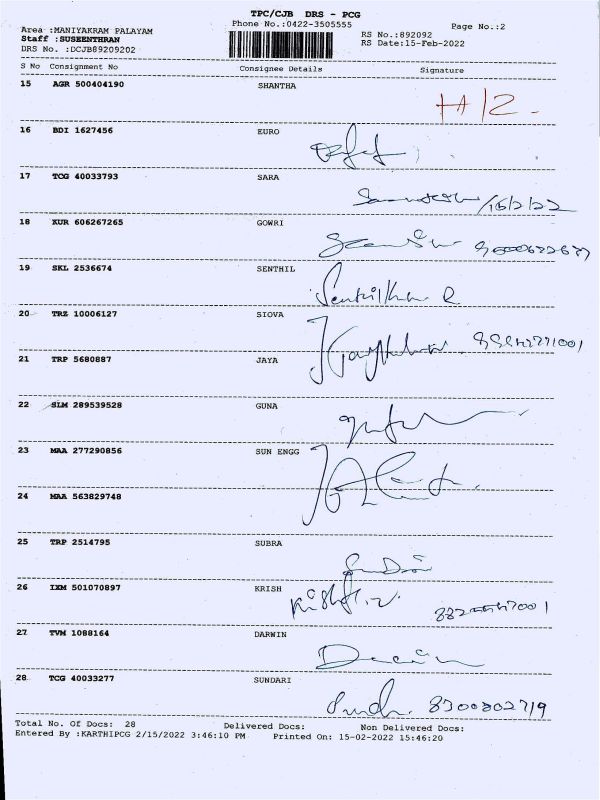 TPC/CJB DRS - PCG
Phone No.:0422-3505555
Page No.:2
Area :MANIYAKRAM PALAYAM
Staff :SUSEENTHRAN
DRS No. :DCJB89209202
RS No.:892092
RS Date:15-Feb-2022
S No Consignment No Consignee Details Signature
15 AGR 500404190 SHANTHA
16 BDI 1627456 EURO
17 TCG 40033793 SARA
16/2/22
18 KUR 606267265 GOWRI
19 SKL 2536674 SENTHIL
Senthilkumar R
20 TRZ 10006127 SIOVA
21 TRP 5680887 JAYA
22 SLM 289539528 GUNA
23 MAA 277290856 SUN ENGG
24 MAA 563829748
25 TRP 2514795 SUBRA
26 IXM 501070897 KRISH
27 TVM 1088164 DARWIN
28 TCG 40033277 SUNDARI
8300802719
Total No. Of Docs: 28 Delivered Docs: Non Delivered Docs:
Entered By :KARTHIPCG 2/15/2022 3:46:10 PM Printed On: 15-02-2022 15:46:20